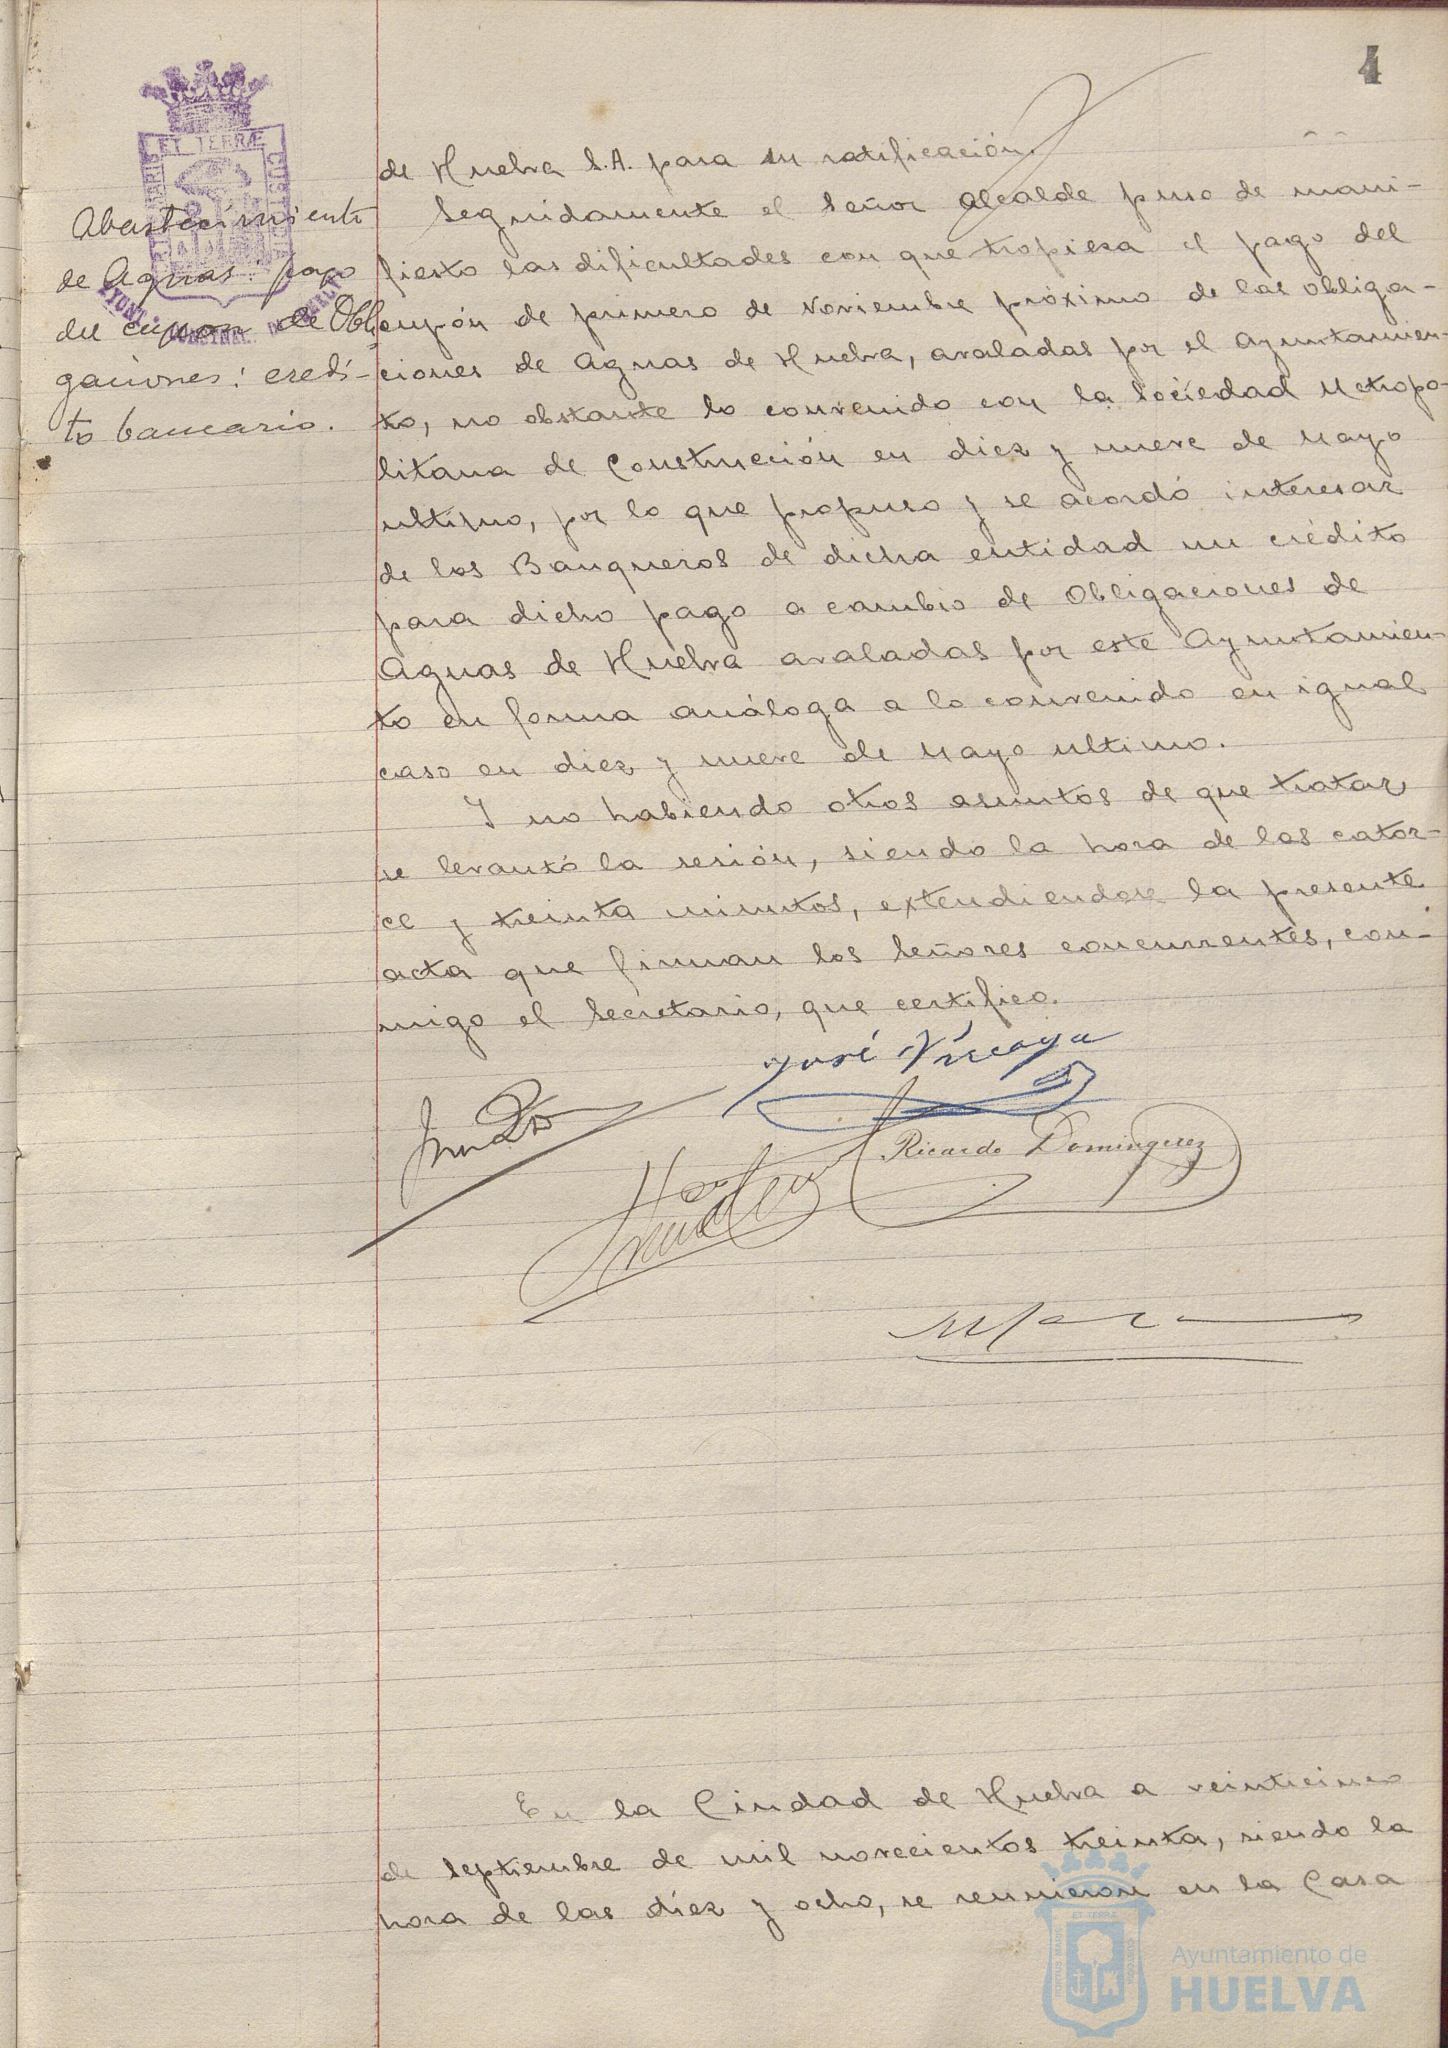 4
de Huelva S.A. para su ratificación.
Seguidamente el Señor Alcalde puso de mani-
fiesto las dificultades con que tropieza el pago del
cupón de primero de Noviembre próximo de las Obliga-
ciones de Aguas de Huelva, avaladas por el Ayuntamien-
to, no obstante lo convenido con la Sociedad Metropo-
litana de Construcción en diez y nueve de Mayo
ultimo, por lo que propuso y se acordó interesar
de los Banqueros de dicha entidad un crédito
para dicho pago a cambio de Obligaciones de
Aguas de Huelva avaladas por este Ayuntamien-
to en forma análoga a lo convenido en igual
caso en diez y nueve de Mayo ultimo.
Y no habiendo otros asuntos de que tratar
se levantó la sesión, siendo la hora de las cator-
ce y treinta minutos, extendiendose la presente
acta que firman los Señores concurrentes, con-
migo el Secretario, que certifico.
Abastecimiento
de Aguas: pago
del cupon de Obli
gaciones: credi-
to bancario.
ET TERRÆ
José Vizcaya
Ricardo Dominguez
En la Ciudad de Huelva a veinticinco
de septiembre de mil novecientos treinta, siendo la
hora de las diez y ocho, se reunieron en la Casa
Ayuntamiento de
HUELVA